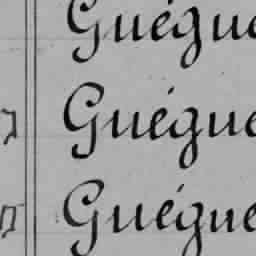 Guégue
Guégue
Guégue